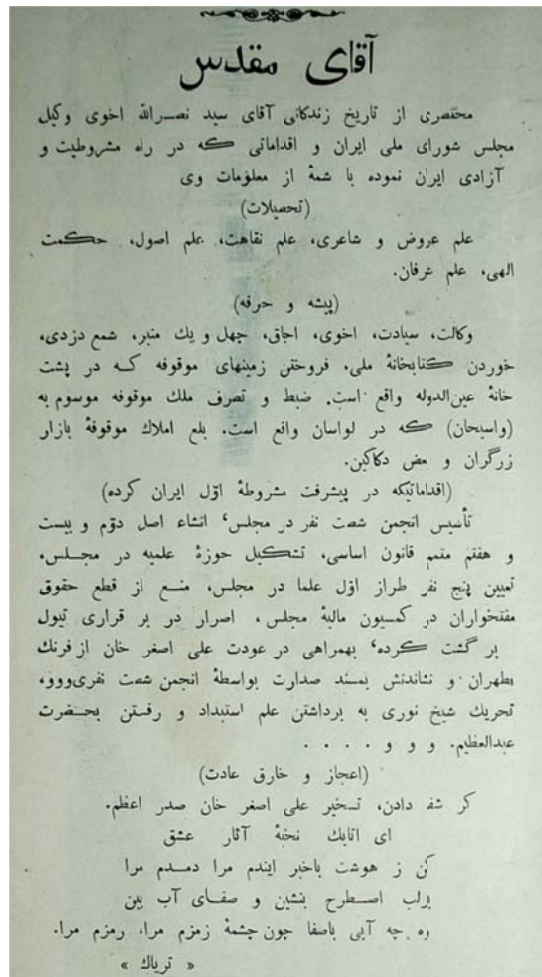 آقای مقدس
مختصری از تاریخ زندگانی آقای سید نصرالله اخوی وکیل
مجلس شورای ملی ایران و اقداماتی که در راه مشروطیت و
آزادی ایران نموده با شمهٔ از معلومات وی
(تحصیلات)
علم عروض و شاعری، علم نقاهت، علم اصول، حکمت
الهی، علم عرفان.
(پیشه و حرفه)
وکالت، سیادت، اخوی، اجاق، چهل و یك منبر، شمع دزدی،
خوردن کتابخانهٔ ملی، فروختن زمینهای موقوفه که در پشت
خانهٔ عین‌الدوله واقع است. ضبط و تصرف ملك موقوفه موسوم به
(واسیحان) که در لواسان واقع است. بلع املاك موقوفهٔ بازار
زرگران و بعض دکاکین.
(اقداماتیکه در پیشرفت مشروطهٔ اوّل ایران کرده)
تأسیس انجمن شصت نفر در مجلس، انشاء اصل دوّم و بیست
و هفتم متمم قانون اساسی، تشکیل حوزهٔ علمیه در مجلس،
تعیین پنج نفر طراز اوّل علما در مجلس، منع از قطع حقوق
مفتخواران در کمسیون مالیهٔ مجلس، اصرار در بر قراری تیول
بر گشت کرده، بهمراهی در عودت علی اصغر خان از فرنك
بطهران و نشاندنش بمسند صدارت بواسطهٔ انجمن شصت نفری‌ووو،
تحریك شیخ نوری به برداشتن علم استبداد و رفتن بحضرت
عبدالعظیم. و و و . . . .
(اعجاز و خارق عادت)
کر شفا دادن، تسخیر علی اصغر خان صدر اعظم.
ای اتابك نخهٔ آثار عشق
کن ز هوشت باخبر ایندم مرا دمدم مرا
برلب اصطرح بنشین و صفای آب بین
چه آبی باصفا چون چشمهٔ زمزم مرا، رمزم مرا.
« تریاك »